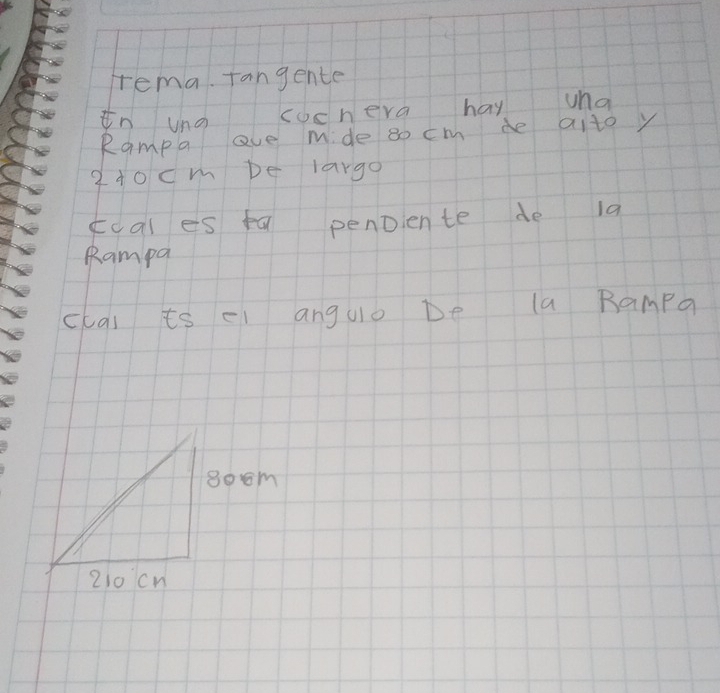 Tema. Tangente
En una cochera hay una
Rampa que mide 80 cm de alto y
210 cm De largo
cual es la penDiente de la
Rampa
cual Es el angulo De la Rampa
80cm
210 cm